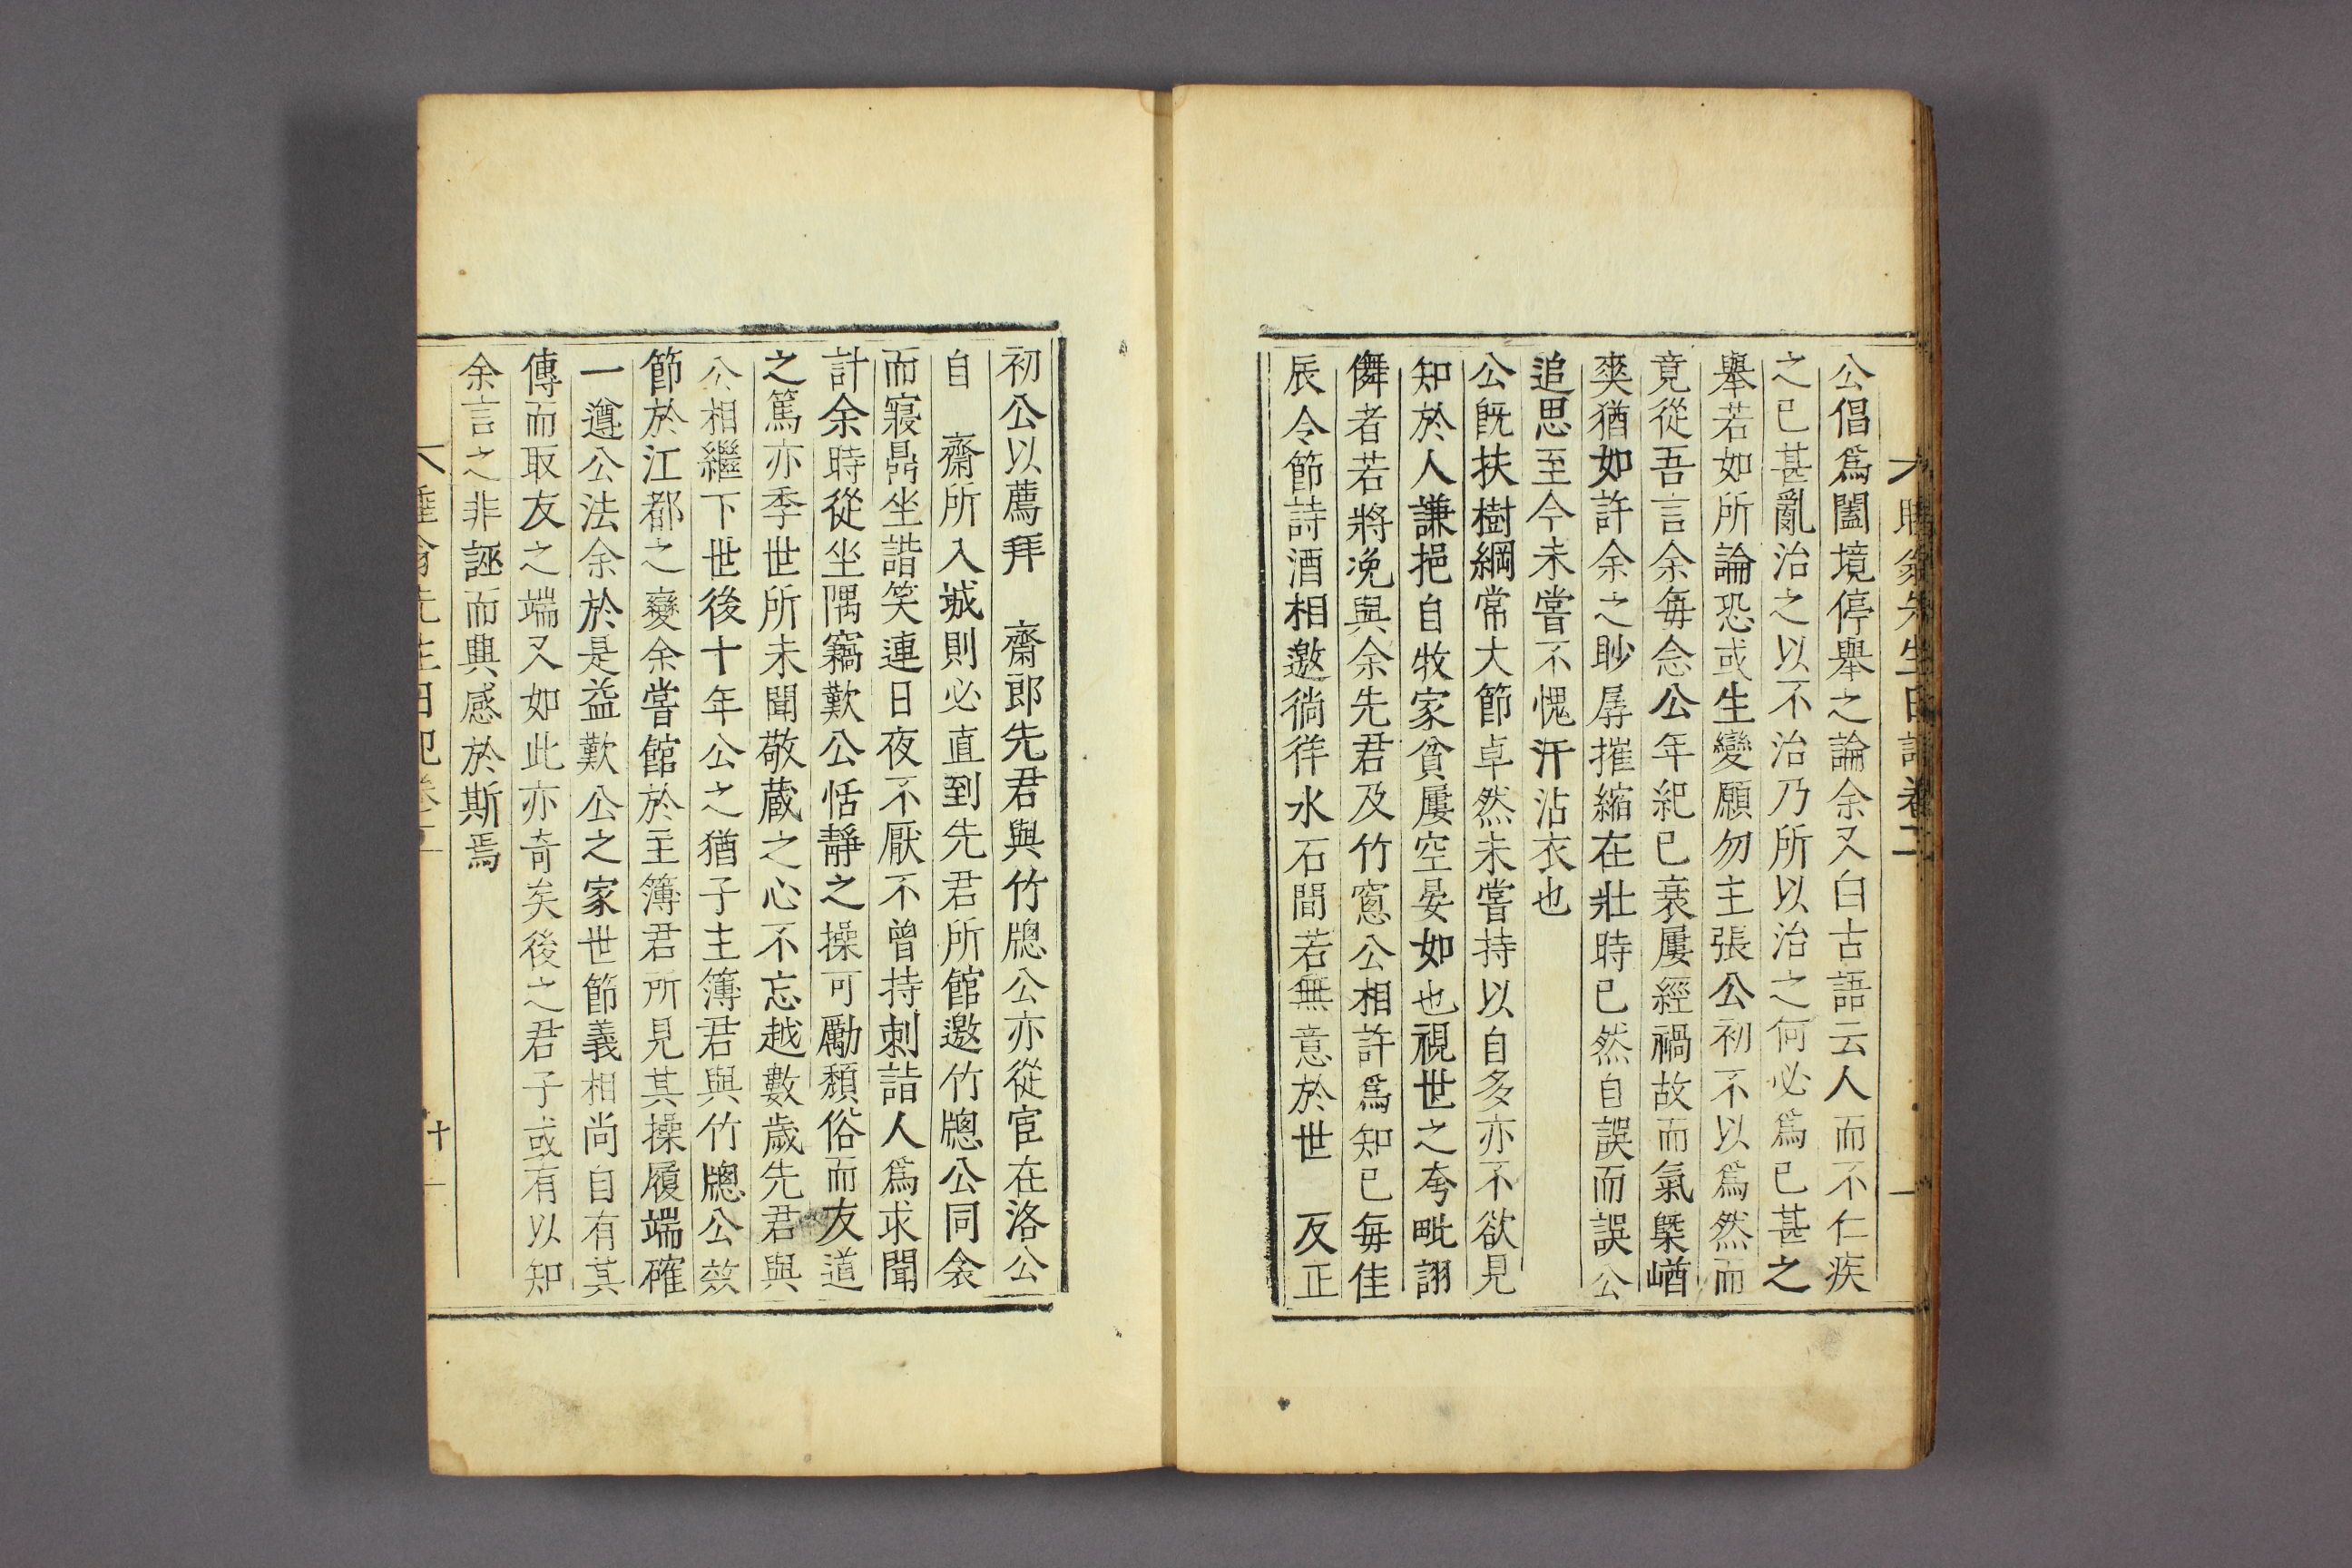 公倡爲闔境停舉之論余又白古語云人而不仁疾
之已甚亂治之以不治乃所以治之何必爲已甚之
舉若如所論恐或生變願勿主張公初不以爲然而
竟從吾言余每念公年紀已衰屢經禍故而氣槩崷
爽猶如許余之眇孱摧縮在壯時已然自誤而誤公
追思至今未嘗不愧汗沾衣也
公旣扶樹綱常大節卓然未嘗持以自多亦不欲見
知於人謙挹自牧家貧屢空晏如也視世之夸毗詡
儛者若將浼與余先君及竹窓公相許爲知已每佳
辰令節詩酒相邀徜徉水石間若無意於世 反正
初公以薦拜 齋郎先君與竹牕公亦從宦在洛公
自 齋所入城則必直到先君所館邀竹牕公同衾
而寢鼎坐諧笑連日夜不厭不曾持刺詣人爲求聞
計余時從坐隅竊歎公恬靜之操可勵頹俗而友道
之篤亦季世所未聞敬蔵之心不忘越數歲先君與
公相繼下世後十年公之猶子主簿君與竹牕公效
節於江都之變余嘗館於主簿君所見其操履端確
一遵公法余於是益歎公之家世節義相尚自有其
傳而取友之端又如此亦奇矣後之君子或有以知
余言之非誣而興感於斯焉
翁先生日記卷二
十